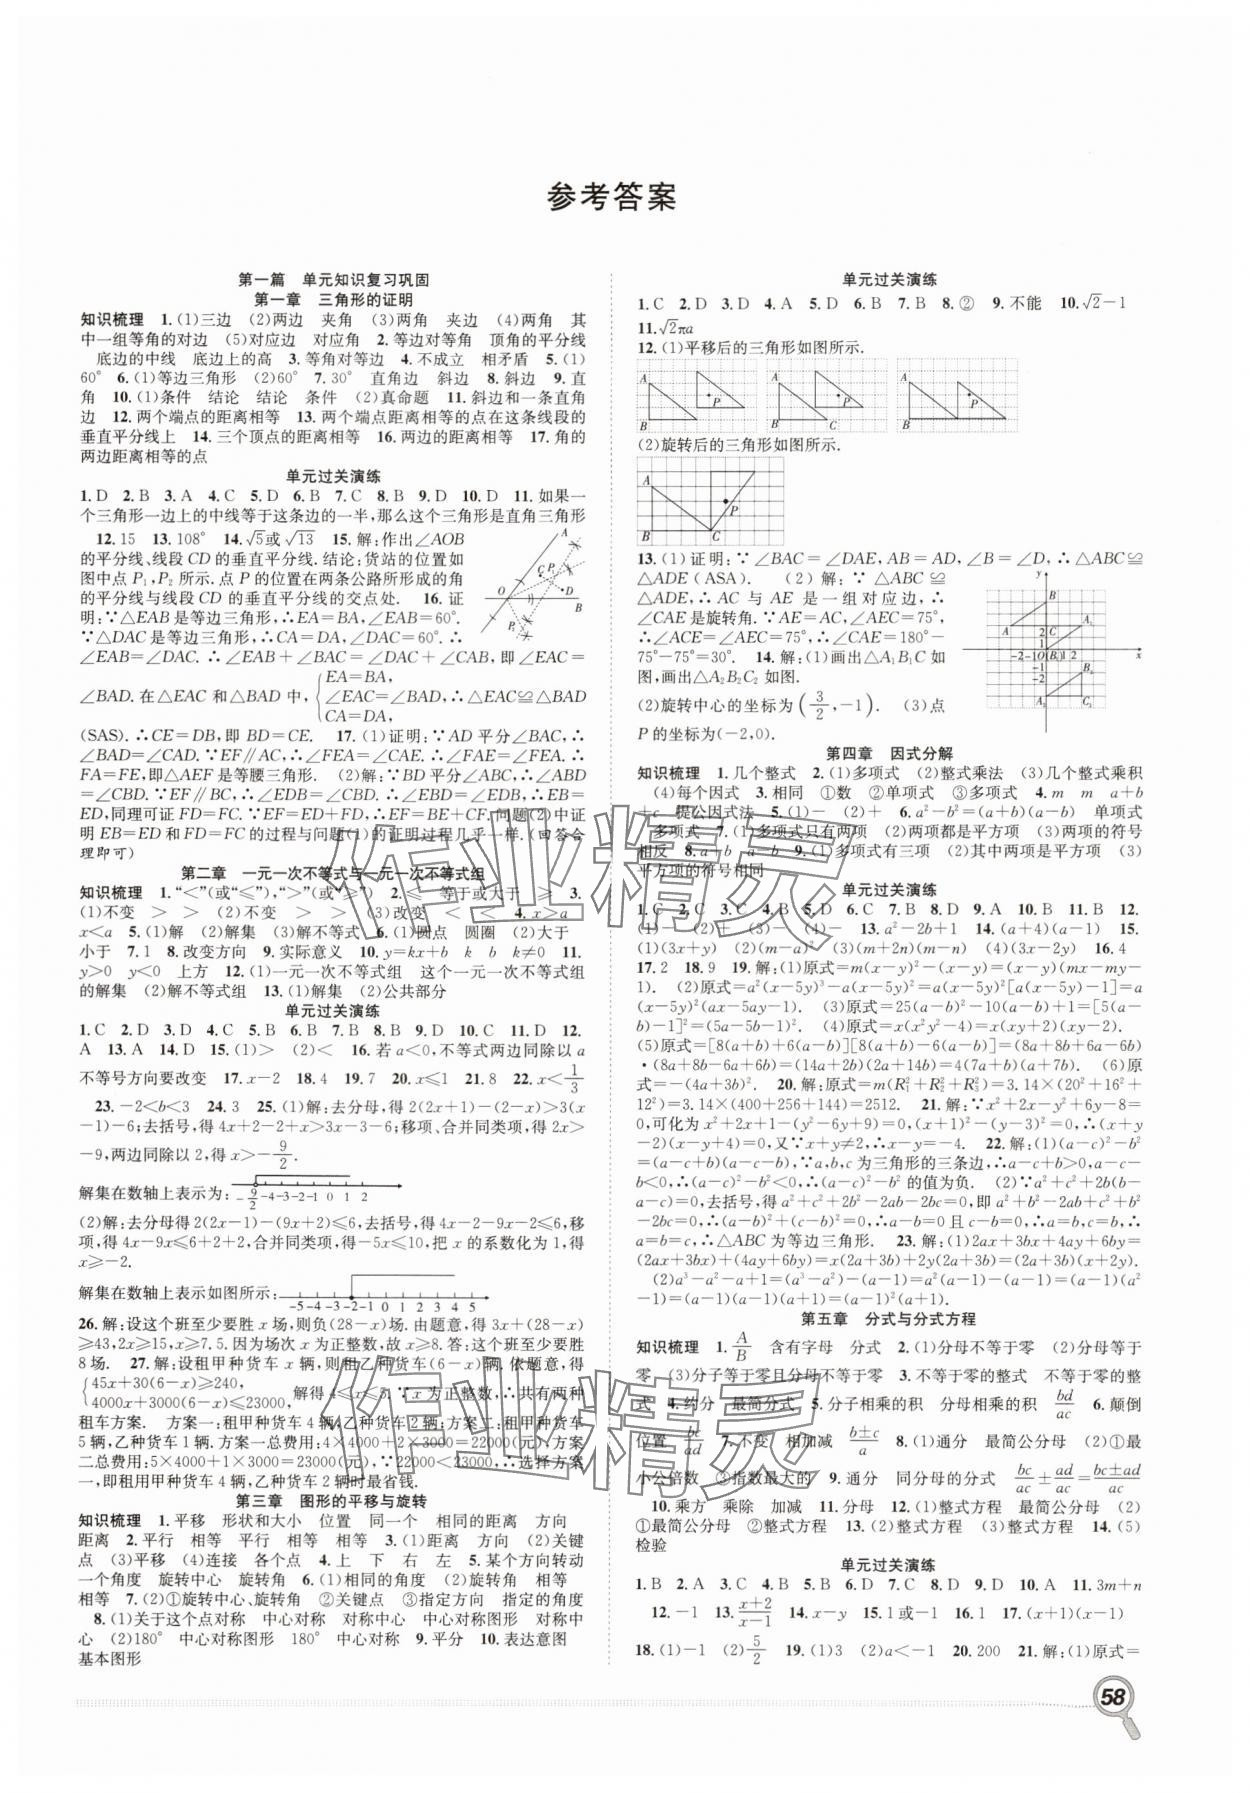 参考答案
第一篇 单元知识复习巩固
第一章 三角形的证明
知识梳理 1.(1)三边 (2)两边 夹角 (3)两角 夹边 (4)两角 其
中一组等角的对边 (5)对应边 对应角 2.等边对等角 顶角的平分线
底边的中线 底边上的高 3.等角对等边 4.不成立 相矛盾 5.(1)
60° 6.(1)等边三角形 (2)60° 7.30° 直角边 斜边 8.斜边 9.直
角 10.(1)条件 结论 结论 条件 (2)真命题 11.斜边和一条直角
边 12.两个端点的距离相等 13.两个端点距离相等的点在这条线段的
垂直平分线上 14.三个顶点的距离相等 16.两边的距离相等 17.角的
两边距离相等的点
单元过关演练
1.D 2.B 3.A 4.C 5.D 6.B 7.C 8.B 9.D 10.D 11.如果一
个三角形一边上的中线等于这条边的一半,那么这个三角形是直角三角形
12.15 13.108° 14.√5或√13 15.解:作出∠AOB
的平分线、线段CD的垂直平分线.结论:货站的位置如
图中点P₁,P₂所示.点P的位置在两条公路所形成的角
的平分线与线段CD的垂直平分线的交点处. 16.证
明:∵△EAB是等边三角形,∴EA=BA,∠EAB=60°.
∵△DAC是等边三角形,∴CA=DA,∠DAC=60°.∴
∠EAB=∠DAC.∴∠EAB+∠BAC=∠DAC+∠CAB,即∠EAC=
∠BAD.在△EAC和△BAD中,{EA=BA, ∠EAC=∠BAD, CA=DA, ∴△EAC≌△BAD
(SAS).∴CE=DB,即BD=CE. 17.(1)证明:∵AD平分∠BAC,∴
∠BAD=∠CAD.∵EF∥AC,∴∠FEA=∠CAE.∴∠FAE=∠FEA.∴
FA=FE,即△AEF是等腰三角形. (2)解:∵BD平分∠ABC,∴∠ABD
=∠CBD.∵EF∥BC,∴∠EDB=∠CBD.∴∠EBD=∠EDB,∴EB=
ED,同理可证FD=FC.∴EF=ED+FD=BE+CF.问题(2)中证
明EB=ED和FD=FC的过程与问题(1)的证明过程几乎一样.(回答合
理即可)
第二章 一元一次不等式与一元一次不等式组
知识梳理 1.“<”(或“≤”),“>”(或“≥”) 2.≤ 等于或大于 ≥ 3.
(1)不变 > > (2)不变 > > (3)改变 < < 4.x>a
x<a 5.(1)解 (2)解集 (3)解不等式 6.(1)圆点 圆圈 (2)大于
小于 7.1 8.改变方向 9.实际意义 10.y=kx+b k b k≠0 11.
y>0 y<0 上方 12.(1)一元一次不等式组 这个一元一次不等式组
的解集 (2)解不等式组 13.(1)解集 (2)公共部分
单元过关演练
1.C 2.D 3.D 4.C 5.B 6.B 7.B 8.B 9.D 10.C 11.D 12.
A 13.A 14.D 15.(1)> (2)< 16.若a<0,不等式两边同除以a
不等号方向要改变 17.x-2 18.4 19.7 20.x≤1 21.8 22.x<1/3
23.-2<b<3 24.3 25.(1)解:去分母,得2(2x+1)-(2-x)>3(x
-1)-6;去括号,得4x+2-2+x>3x-3-6;移项、合并同类项,得2x>
-9,两边同除以2,得x>-9/2.
解集在数轴上表示为: -9/2 -4-3-2-1 0 1 2
(2)解:去分母得2(2x-1)-(9x+2)≤6,去括号,得4x-2-9x-2≤6,移
项,得4x-9x≤6+2+2,合并同类项,得-5x≤10,把x的系数化为1,得
x≥-2.
解集在数轴上表示如图所示: -5-4-3-2-1 0 1 2 3 4 5
26.解:设这个班至少要胜x场,则负(28-x)场.由题意,得3x+(28-x)
≥43,2x≥15,x≥7.5.因为场次x为正整数,故x≥8.答:这个班至少要胜
8场. 27.解:设租甲种货车x辆,则租乙种货车(6-x)辆.依题意,得
{45x+30(6-x)≥240, 4000x+3000(6-x)≤23000, 解得4≤x≤5.∵x为正整数,∴共有两种
租车方案. 方案一:租甲种货车4辆,乙种货车2辆;方案二:租甲种货车
5辆,乙种货车1辆.方案一总费用:4×4000+2×3000=22000(元),方案
二总费用:5×4000+1×3000=23000(元),∵22000<23000,∴选择方案
一,即租用甲种货车4辆,乙种货车2辆最省钱.
第三章 图形的平移与旋转
知识梳理 1.平移 形状和大小 位置 同一个 相同的距离 方向
距离 2.平行 相等 平行 相等 相等 3.(1)距离 方向 (2)关键
点 (3)平移 (4)连接 各个点 4.上 下 右 左 5.某个方向转动
一个角度 旋转中心 旋转角 6.(1)相同的角度 (2)旋转角 相等
相等 7.(2)①旋转中心、旋转角 ②关键点 ③指定方向 指定的角度
8.(1)关于这个点对称 中心对称 对称中心 中心对称图形 对称中
心 (2)180° 中心对称图形 180° 中心对称 9.平分 10.表达意图
基本图形
单元过关演练
1.C 2.D 3.D 4.A 5.D 6.B 7.B 8.② 9.不能 10.√2-1
11.√2πa
12.(1)平移后的三角形如图所示.
(2)旋转后的三角形如图所示.
13.(1)证明:∵∠BAC=∠DAE,AB=AD,∠B=∠D,∴△ABC≌
△ADE(ASA). (2)解:∵△ABC≌
△ADE,∴AC与AE是一组对应边,∴
∠CAE是旋转角.∵AE=AC,∠AEC=75°,
∴∠ACE=∠AEC=75°,∴∠CAE=180°-
75°-75°=30°. 14.解:(1)画出△A₁B₁C如
图,画出△A₂B₂C₂如图.
(2)旋转中心的坐标为(3/2,-1). (3)点
P的坐标为(-2,0).
第四章 因式分解
知识梳理 1.几个整式 2.(1)多项式 (2)整式乘法 (3)几个整式乘积
(4)每个因式 3.相同 ①数 ②单项式 ③多项式 4.m m a+b
+c 提公因式法 5.(1)- (2)+ 6.a²-b²=(a+b)(a-b) 单项式
多项式 7.(1)多项式只有两项 (2)两项都是平方项 (3)两项的符号
相反 8.a+b a-b 9.(1)多项式有三项 (2)其中两项是平方项 (3)
平方项的符号相同
单元过关演练
1.C 2.C 3.C 4.B 5.D 6.C 7.B 8.D 9.A 10.B 11.B 12.
(1)- (2)+ (3)- (4)- 13.a²-2b+1 14.(a+4)(a-1) 15.
(1)(3x+y) (2)(m-a)² (3)(m+2n)(m-n) (4)(3x-2y) 16.4
17.2 18.9 19.解:(1)原式=m(x-y)²-(x-y)=(x-y)(mx-my-
1). (2)原式=a²(x-5y)³-a(x-5y)²=a(x-5y)²[a(x-5y)-1]=a
(x-5y)²(ax-5ay-1). (3)原式=25(a-b)²-10(a-b)+1=[5(a-
b)-1]²=(5a-5b-1)². (4)原式=x(x²y²-4)=x(xy+2)(xy-2).
(5)原式=[8(a+b)+6(a-b)][8(a+b)-6(a-b)]=(8a+8b+6a-6b)
·(8a+8b-6a+6b)=(14a+2b)(2a+14b)=4(7a+b)(a+7b). (6)原
式=-(4a+3b)². 20.解:原式=m(R₁²+R₂²+R₃²)=3.14×(20²+16²+
12²)=3.14×(400+256+144)=2512. 21.解:∵x²+2x-y²+6y-8=
0,可化为x²+2x+1-(y²-6y+9)=0,(x+1)²-(y-3)²=0,∴(x+y
-2)(x-y+4)=0,又∵x+y≠2,∴x-y=-4. 22.解:(1)(a-c)²-b²
=(a-c+b)(a-c-b),∵a,b,c为三角形的三条边,∴a-c+b>0,a-c-
b<0,∴(a-c)²-b²<0,∴(a-c)²-b²的值为负. (2)∵a²+c²+2b(b-
a-c)=0,去括号,得a²+c²+2b²-2ab-2bc=0,即a²+b²-2ab+c²+b²
-2bc=0,∴(a-b)²+(c-b)²=0,∴a-b=0且c-b=0,∴a=b,c=b,∴
a=b=c,∴△ABC为等边三角形. 23.解:(1)2ax+3bx+4ay+6by=
(2ax+3bx)+(4ay+6by)=x(2a+3b)+2y(2a+3b)=(2a+3b)(x+2y).
(2)a³-a²-a+1=(a³-a²)-(a-1)=a²(a-1)-(a-1)=(a-1)(a²
-1)=(a-1)(a-1)(a+1)=(a-1)²(a+1).
第五章 分式与分式方程
知识梳理 1.A/B 含有字母 分式 2.(1)分母不等于零 (2)分母等于
零 (3)分子等于零且分母不等于零 3.不等于零的整式 不等于零的整
式 4.约分 最简分式 5.分子相乘的积 分母相乘的积 bd/ac 6.颠倒
位置 bc/ad 7.不变 相加减 b±c/a 8.(1)通分 最简公分母 (2)①最
小公倍数 ③指数最大的 9.通分 同分母的分式 bc/ac±ad/ac=bc±ad/ac
10.乘方 乘除 加减 11.分母 12.(1)整式方程 最简公分母 (2)
①最简公分母 ②整式方程 13.(2)整式方程 (3)整式方程 14.(5)
检验
单元过关演练
1.B 2.A 3.C 4.B 5.B 6.A 7.C 8.D 9.D 10.A 11.3m+n
12.-1 13.x+2/x-1 14.x-y 15.1或-1 16.1 17.(x+1)(x-1)
18.(1)-1 (2)5/2 19.(1)3 (2)a<-1 20.200 21.解:(1)原式=
58
作业精灵
作业精灵